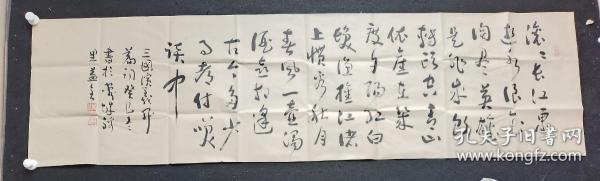 滚滚长江東
逝水浪花
淘尽英雄
是非成败
转头空青山
依旧在几
度夕阳红白
发渔樵江渚
上惯看秋月
春风一壶浊
酒喜相逢
古今多少
事都付笑
谈中
三國演義开
篇词癸巳冬
孔夫子旧书网
www.kongfz.com